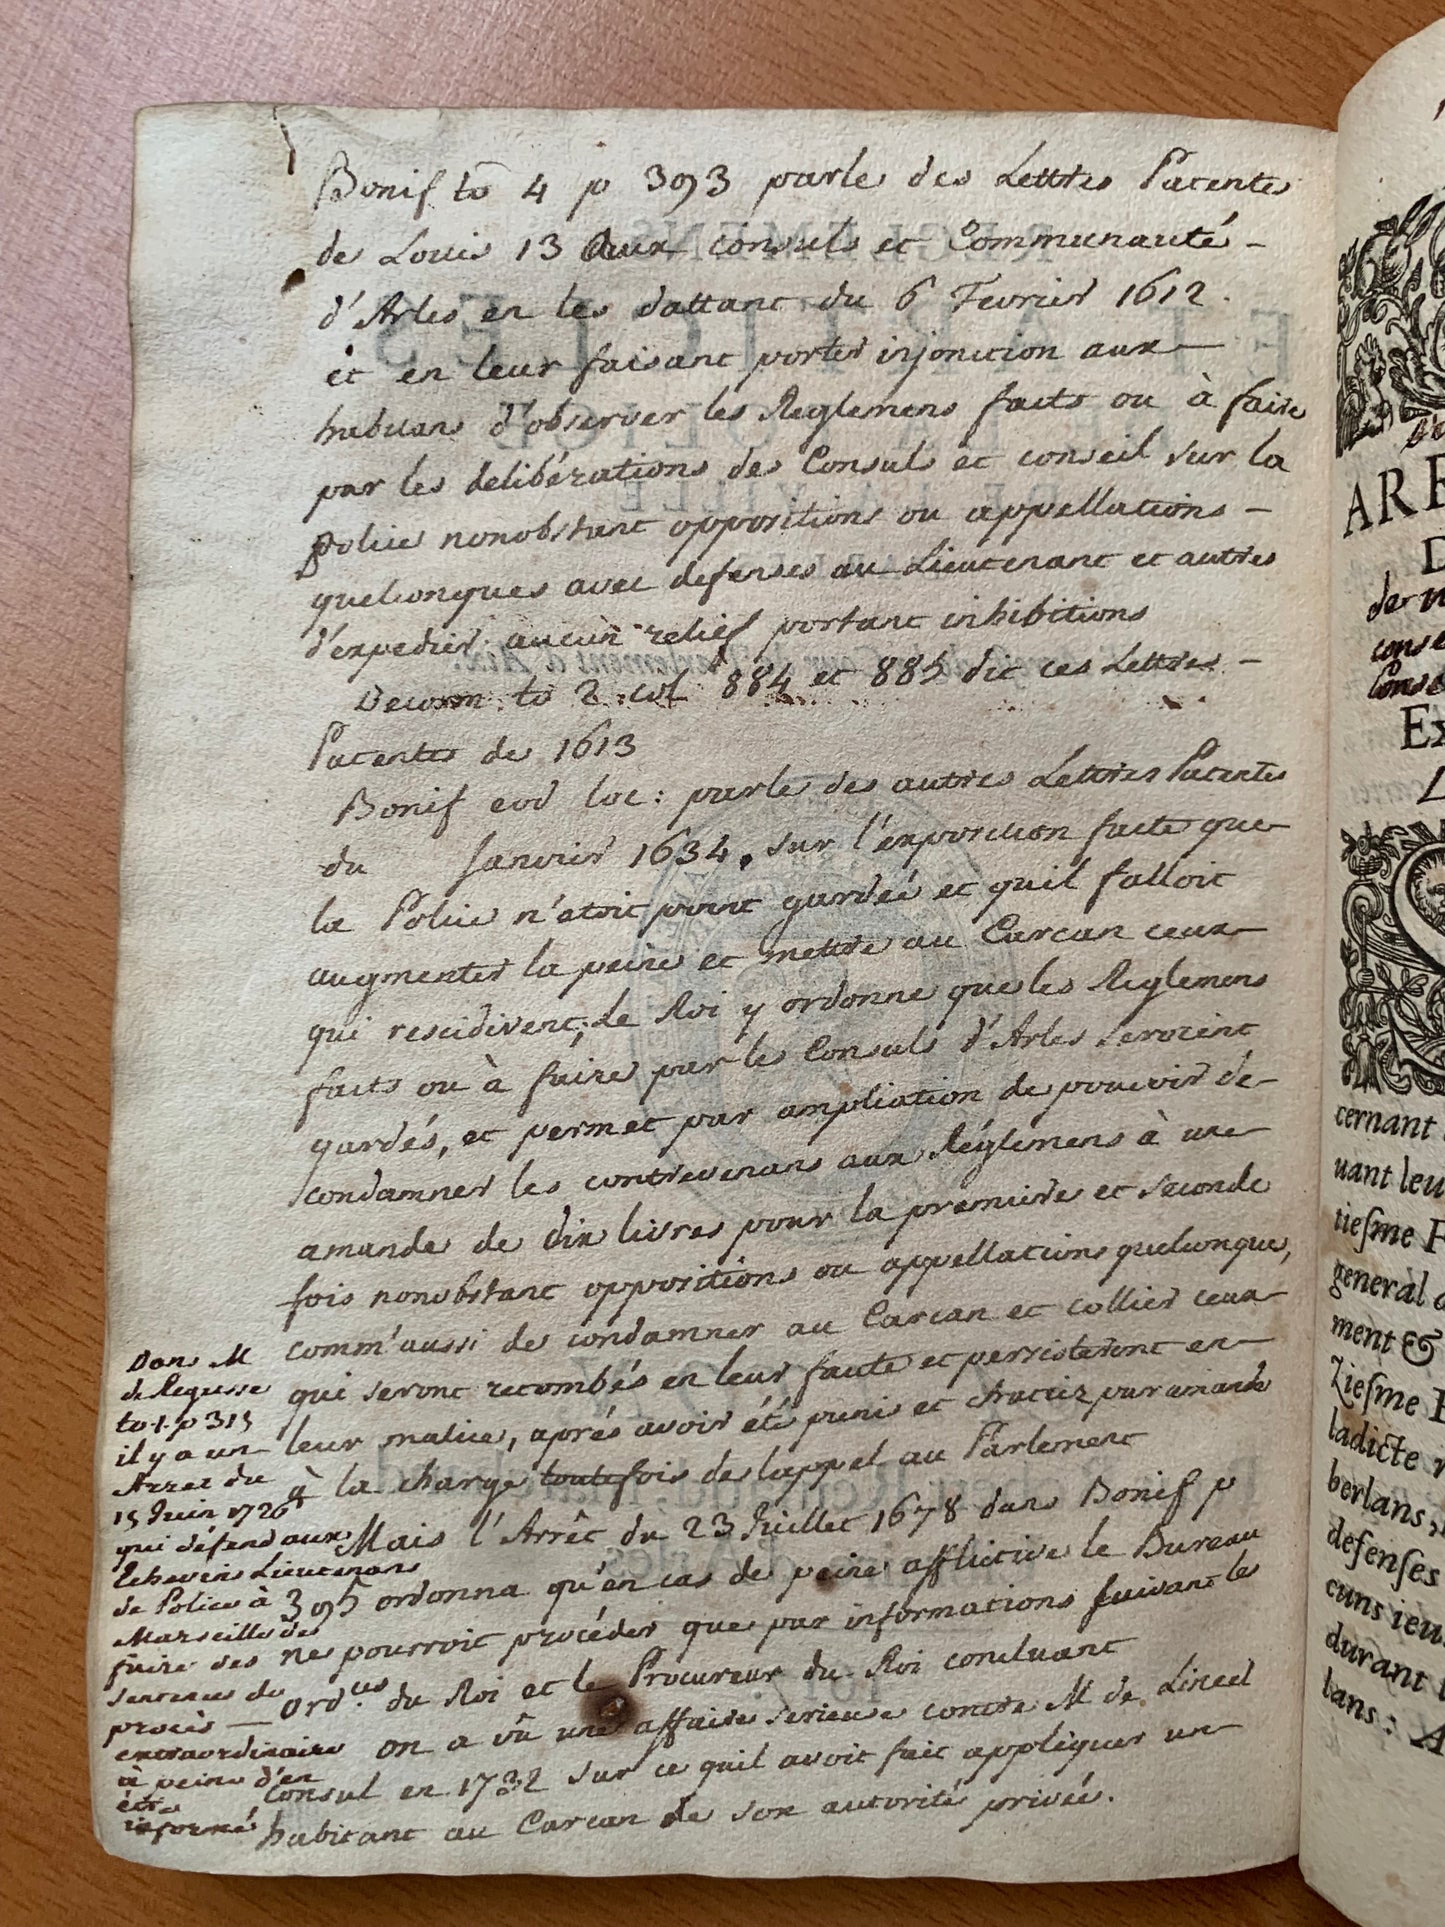 Bonif to 4 p 393 parle des Lettres Patentes
de Louis 13 Aux consuls et Communauté -
d'Arles en les dattant du 6 Fevrier 1612.
et en leur faisant porter injonction aux
habitans d'observer les Reglemens faits ou à faire
par les delibérations des Consuls et conseil sur la
police nonobstant oppositions ou appellations -
quelconques avec defenses au Lieutenant et autres
d'expedier aucun relief portant inhibitions
Decorm. to 2. col 884 et 885 dit ces Lettres -
Patentes de 1613
Bonif eod loc: parle des autres Lettres Patentes
du Janvier 1634, sur l'exposition faite que
la Police n'etoit point gardeé et quil falloit
augmenter la peine et mettre au Carcan ceux
qui rescidivent; Le Roi y ordonne que les Reglemens
faits ou à faire par les Consuls d'Arles seroient
gardés, et permet par ampliation de pouvoir de
condamner les contrevenans aux Réglemens à une
amande de dix livres pour la premiere et seconde
fois nonobstant oppositions ou appellations quelconque,
comm'aussi de condamner au Carcan et collier ceux
qui seront retombés en leur faute et persisteront en
leur malice, aprés avoir été punis et chatiez par amande
à la charge toutefois de lappel au Parlement
Mais l'Arrêt du 23 Juillet 1678 dans Bonif p
395 ordonna qu'en cas de peine afflictive le Bureau
ne pourroit procéder que par informations suivant les
ord.ces du Roi et le Procureur du Roi concluant
on a vû une affaire serieuse contre M de Lincel
Consul en 1732 sur ce quil avoit fait appliquer un
habitant au Carcan de son autorité privée.
Dans M
de Regusse
to 1. p 315
il y a un
Arret du
15 Juin 1726
qui défend aux
Echevins Lieutenans
de Police à
Marseille de
faire des
sentences de
procès —
extraordinaire
à peine d'en
être
informé
ARE
D
de n
conse
Conse
Ex
L
cernant
uant leu
tiesme F
general
ment &
Ziesme
ladicte
berlans,
defenses
cuns ieu
durant
lans: A